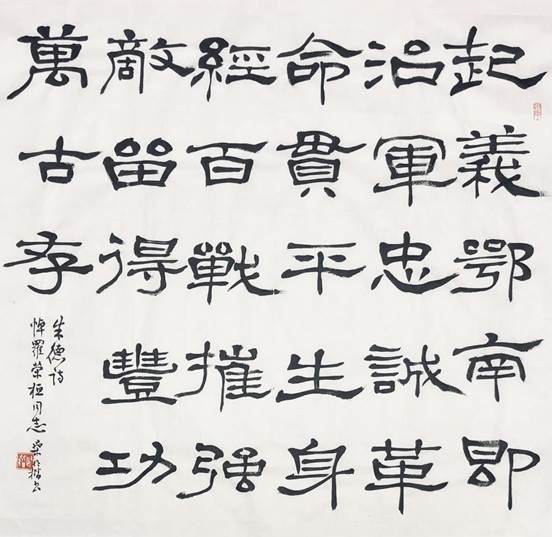 起義鄂南即
治軍忠誠革
命貫平生身
經百戰摧强
敵留得豐功
萬古存
朱德詩
悼羅荣桓同志